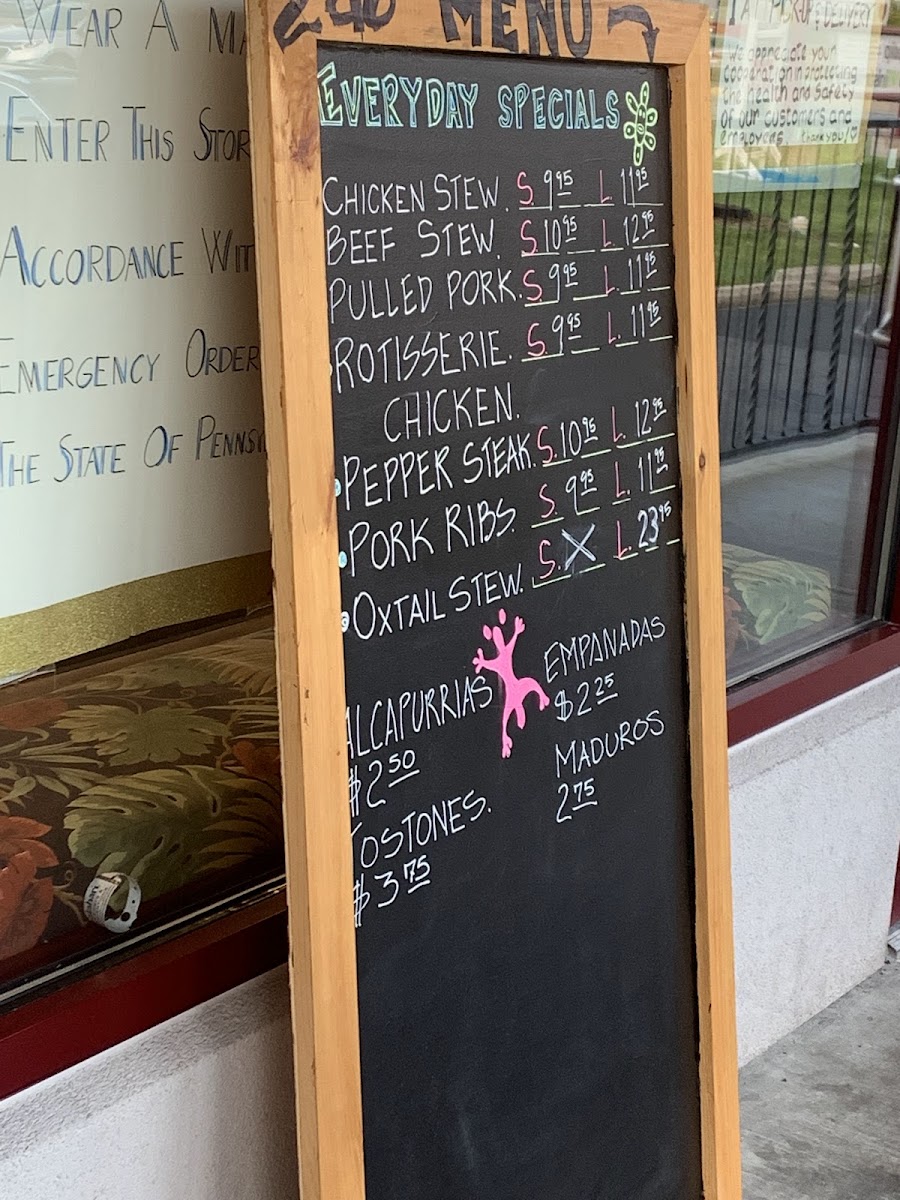 WEAR A MA
ENTER THIS STOR
ACCORDANCE WIT
EMERGENCY ORDER
THE STATE OF PENNS
MENU
EVERYDAY SPECIALS
CHICKEN STEW. S. 9.95 L. 11.95
BEEF STEW. S. 10.95 L. 12.95
PULLED PORK. S. 9.95 L. 11.95
ROTISSERIE. S. 9.95 L. 11.95
CHICKEN.
PEPPER STEAK. S. 10.95 L. 12.95
PORK RIBS. S. 9.95 L. 11.95
OXTAIL STEW. S. X L. 23.95
ALCAPURRIAS
$2.50
TOSTONES.
$3.75
EMPANADAS
$2.25
MADUROS
2.75
PICK-UP & DELIVERY
We appreciate your
cooperation in protecting
the health and safety
of our customers and
employees. thank you!